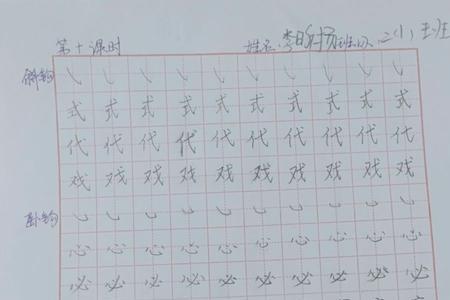 第十课时 姓名:李明扬 班级:二(1)班
斜钩 ㇂ ㇂ ㇂ ㇂ ㇂ ㇂ ㇂ ㇂ ㇂ ㇂
式 式 式 式 式 式 式 式 式 式
代 代 代 代 代 代 代 代 代 代
戏 戏 戏 戏 戏 戏 戏 戏 戏 戏
卧钩 ㇃ ㇃ ㇃ ㇃ ㇃ ㇃ ㇃ ㇃ ㇃ ㇃
心 心 心 心 心 心 心 心 心 心
必 必 必 必 必 必 必 必 必 必